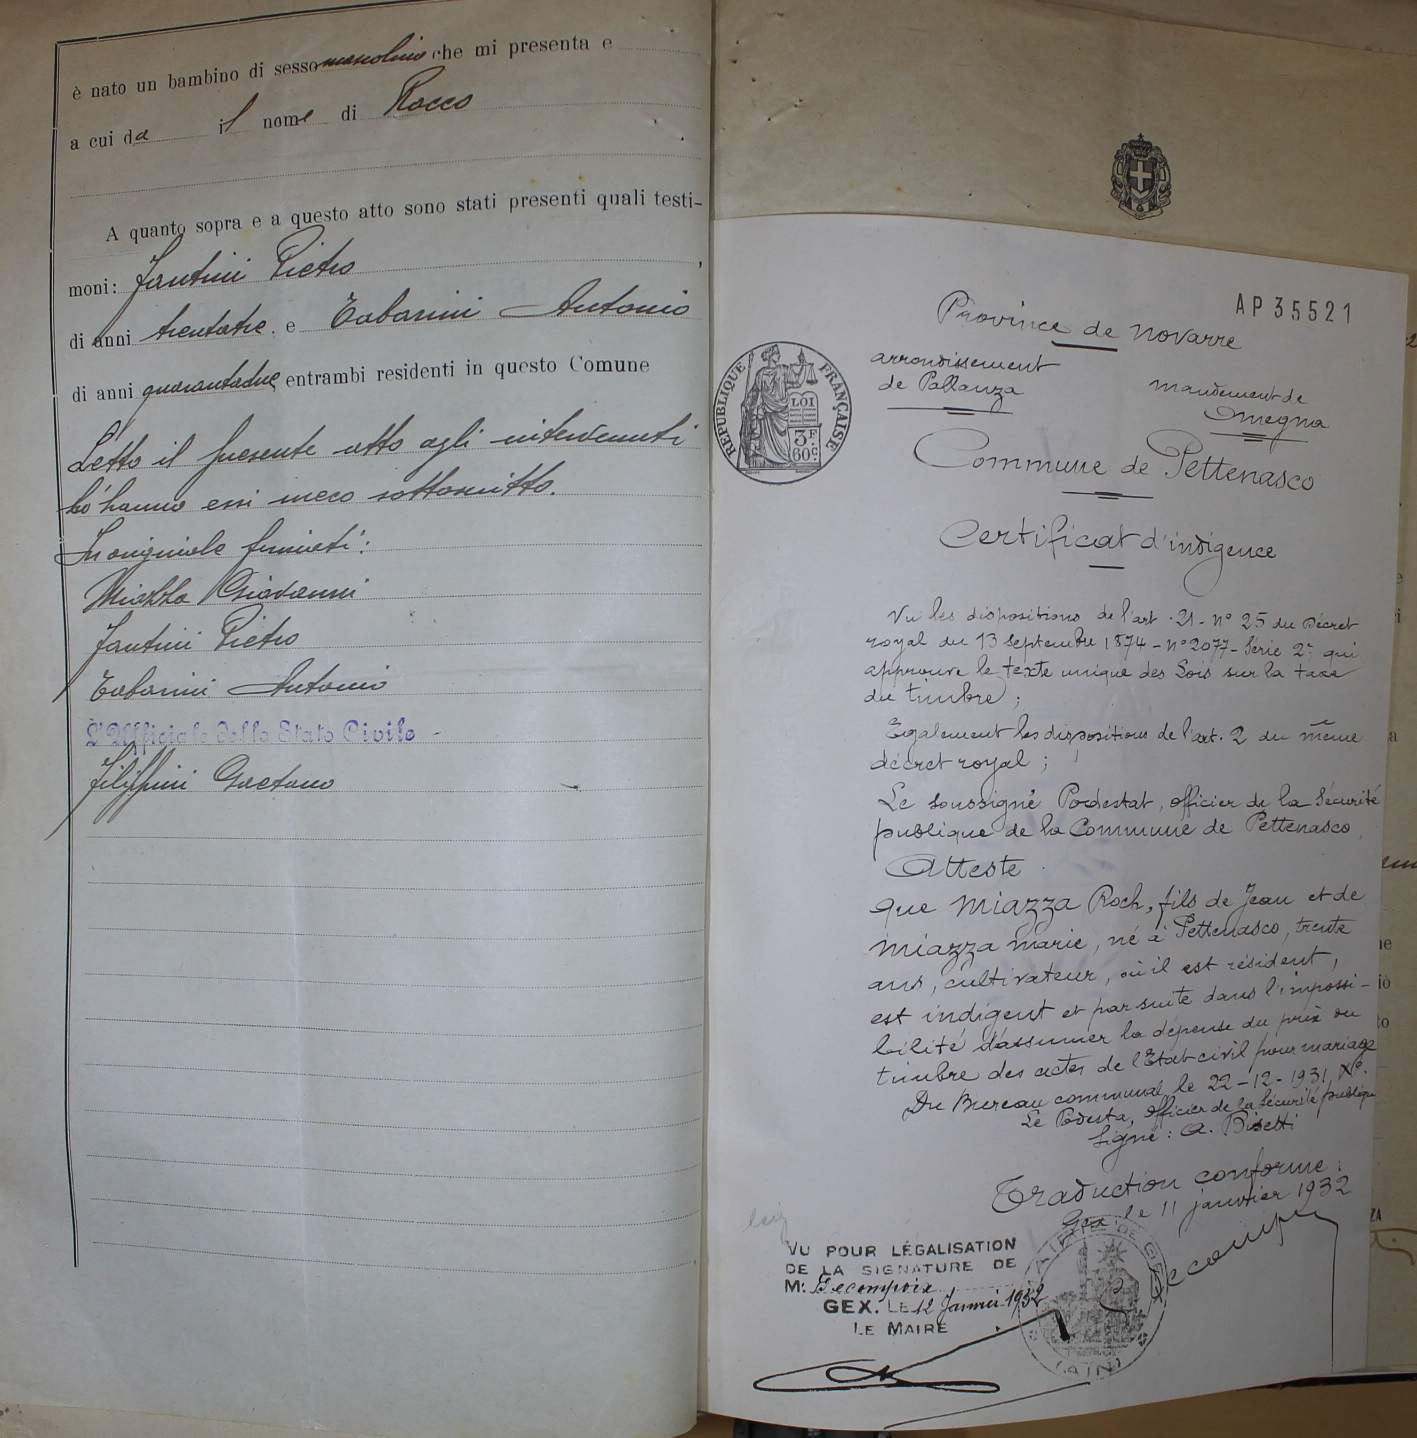 è nato un bambino di sesso mascolino che mi presenta e
a cui da il nome di Rocco
A quanto sopra e a questo atto sono stati presenti quali testi-
moni: Fantini Pietro
di anni trentatre e Tabarini Antonio
di anni quarantadue entrambi residenti in questo Comune
Letto il presente atto agli intervenuti
lo hanno essi meco sottoscritto.
In originale firmati:
Miazza Giovanni
Fantini Pietro
Tabarini Antonio
L'Ufficiale dello Stato Civile
Filippini Gaetano
AP35521
Province de Novarre
arrondissement
de Pallanza
mandement de
Omegna
RÉPUBLIQUE FRANÇAISE
LOI
3F
60c
Commune de Pettenasco
Certificat d'indigence
Vu les dispositions de l'art. 21 - n° 25 du Décret
royal du 13 Septembre 1874 - n° 2077 - Série 2e qui
approuve le texte unique des Lois sur la taxe
du timbre ;
Egalement les dispositions de l'art. 2 du même
décret royal ;
Le Soussigné Podestat, officier de la Sécurité
publique de la Commune de Pettenasco
Atteste
que Miazza Roch, fils de Jean et de
Miazza Marie, né à Pettenasco, trente
ans, cultivateur, où il est résident,
est indigent et par suite dans l'impossi-
bilité d'assumer la dépense du prix du
timbre des actes de l'Etat-civil pour mariage
Du Bureau communal, le 22-12-1931, X°.
Le Podesta, officier de la Sécurité publique
Signé : A. Bisetti
Traduction conforme :
Gex le 11 janvier 1932
VU POUR LÉGALISATION
DE LA SIGNATURE DE
Mr Lecomposix
GEX. LE 12 Janvier 1932
LE MAIRE
MAIRIE DE GEX
(AIN)